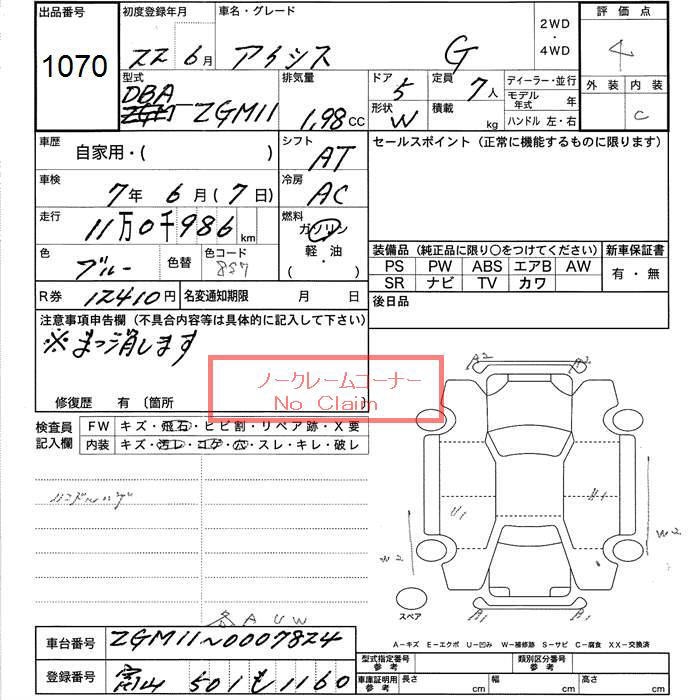 出品番号
1070
初度登録年月
22年 6月
車名・グレード
アイシス G
2WD・4WD
評価点
4
外装 内装
C
型式
DBA
ZGM11
排気量
1,98 CC
ドア
5
形状
W
定員
7人
積載
kg
ディーラー・並行
モデル年式 年
ハンドル 左・右
車歴
自家用・( )
シフト
AT
セールスポイント(正常に機能するものに限ります)
車検
7年 6月(7日)
冷房
AC
走行
11万0千986km
燃料
ガソリン
軽・油
・( )
色
ブルー
色替
色コード
8S7
装備品(純正品に限り〇をつけてください)
新車保証書
PS PW ABS エアB AW
SR ナビ TV カワ
有・無
R券 12410円
名変通知期限 月 日
後日品
注意事項申告欄(不具合内容等は具体的に記入して下さい)
※まっ消します
ノークレームコーナー
No Claim
修復歴 有 〔箇所
検査員記入欄
FW キズ・飛石・ヒビ割・リペア跡・X要
内装 キズ・汚レ・コゲ・穴・スレ・キレ・破レ
A2
A2
U1
A1
W2
W2
B1
B1
スペア
A U W
A-キズ E-エクボ U-凹み W-補修跡 S-サビ C-腐食 XX-交換済
車台番号
ZGM11~0007824
登録番号
富山 501 も 1160
型式指定番号 参考
類別区分番号 参考
車庫証明用 参考
長さ cm
幅 cm
高さ cm